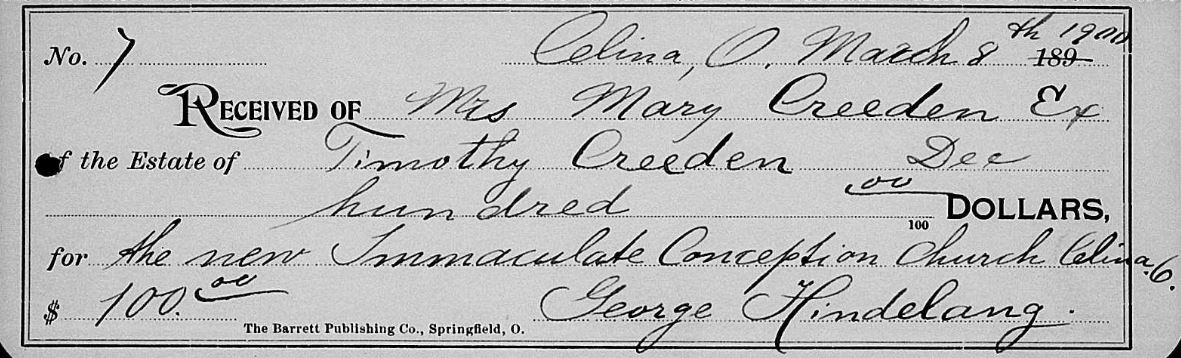 No. 7 Celina, O. March 8th 1900 189
RECEIVED OF Mrs Mary Creeden Ex
of the Estate of Timothy Creeden Dec
hundred 00/100 DOLLARS,
for the new Immaculate Conception Church Celina, O.
$ 100.00 George Hindelang.
The Barrett Publishing Co., Springfield, O.